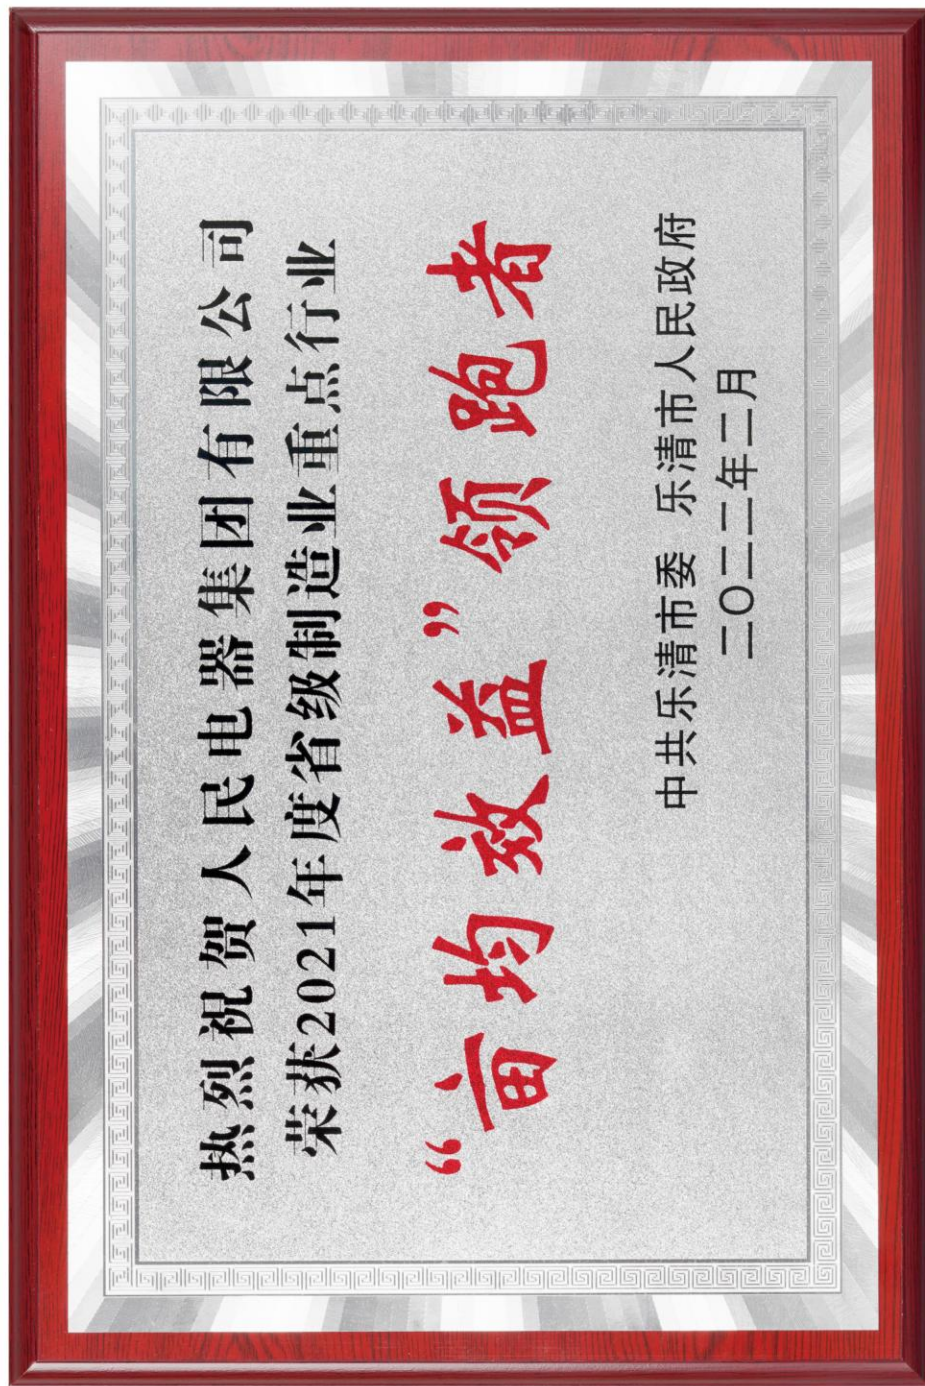 热烈祝贺人民电器集团有限公司
荣获2021年度省级制造业重点行业
“亩均效益”领跑者
中共乐清市委 乐清市人民政府
二〇二二年二月